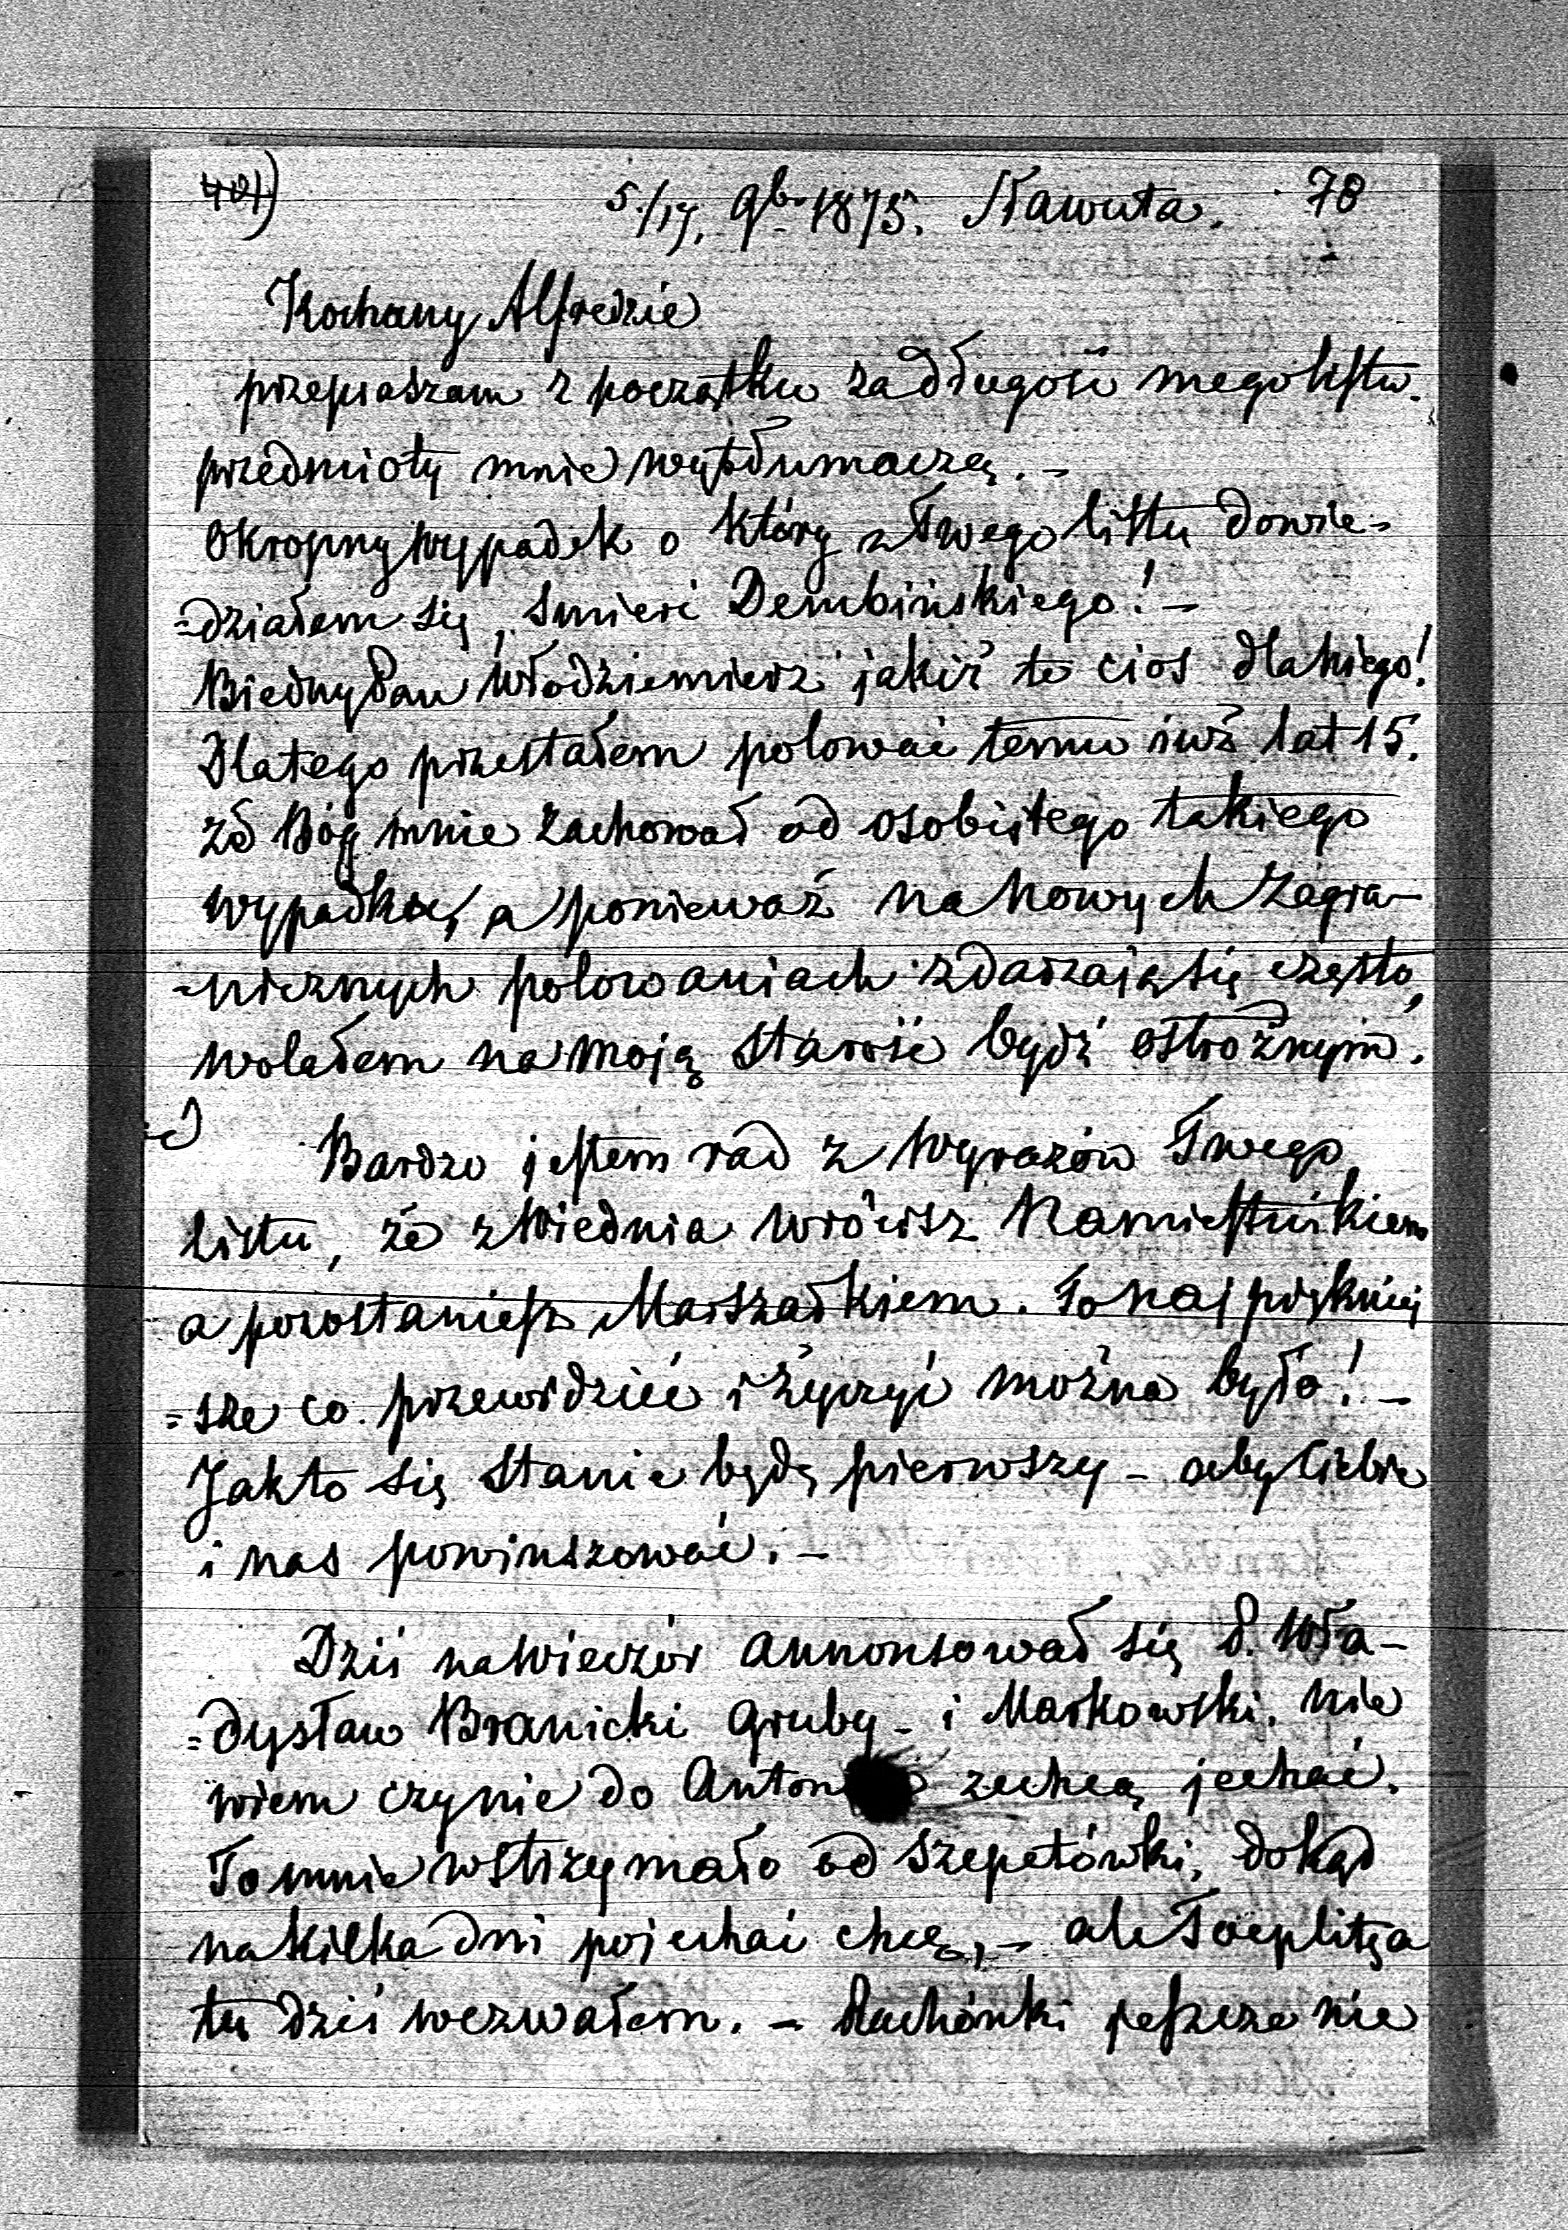 401)
5./17. 9b. 1875. Sławuta. 78
Kochany Alfredzie
przepraszam z początku za długość mego listu.
przedmioty mnie wytłumaczą. -
Okropny wypadek o który z Twego listu dowie-
=działem się, Smierć Dembińskiego! -
Biedny Pan Włodziemierz jakiż to cios dla niego!
Dlatego przestałem polować temu iuż lat 15.
że Bóg mnie zachował od osobistego takiego
wypadku, a ponieważ na nowych zagra-
-nicznych polowaniach zdarzają się często,
wolałem na moją starość bydź ostrożnym.
Bardzo jestem rad z wyrazów Twego
listu, że z Wiednia wrócisz Namiestnikiem
a pozostaniesz Marszałkiem. To najpiękniej
=sze co przewidzieć i życzyć można było! -
Jak to się stanie będę pierwszy - aby Ciebie
i nas powinszować. -
Dziś na wieczór annonsował się P. Wła-
=dysław Branicki Gruby - i Markowski. nie
wiem czy nie do zechcą jechać.
To mnie wstrzymało od Szepetówki, dokąd
na kilka dni pojechać chcę, - ale Toeplitza
tu dziś wezwałem. - Rachónki jeszcze nie